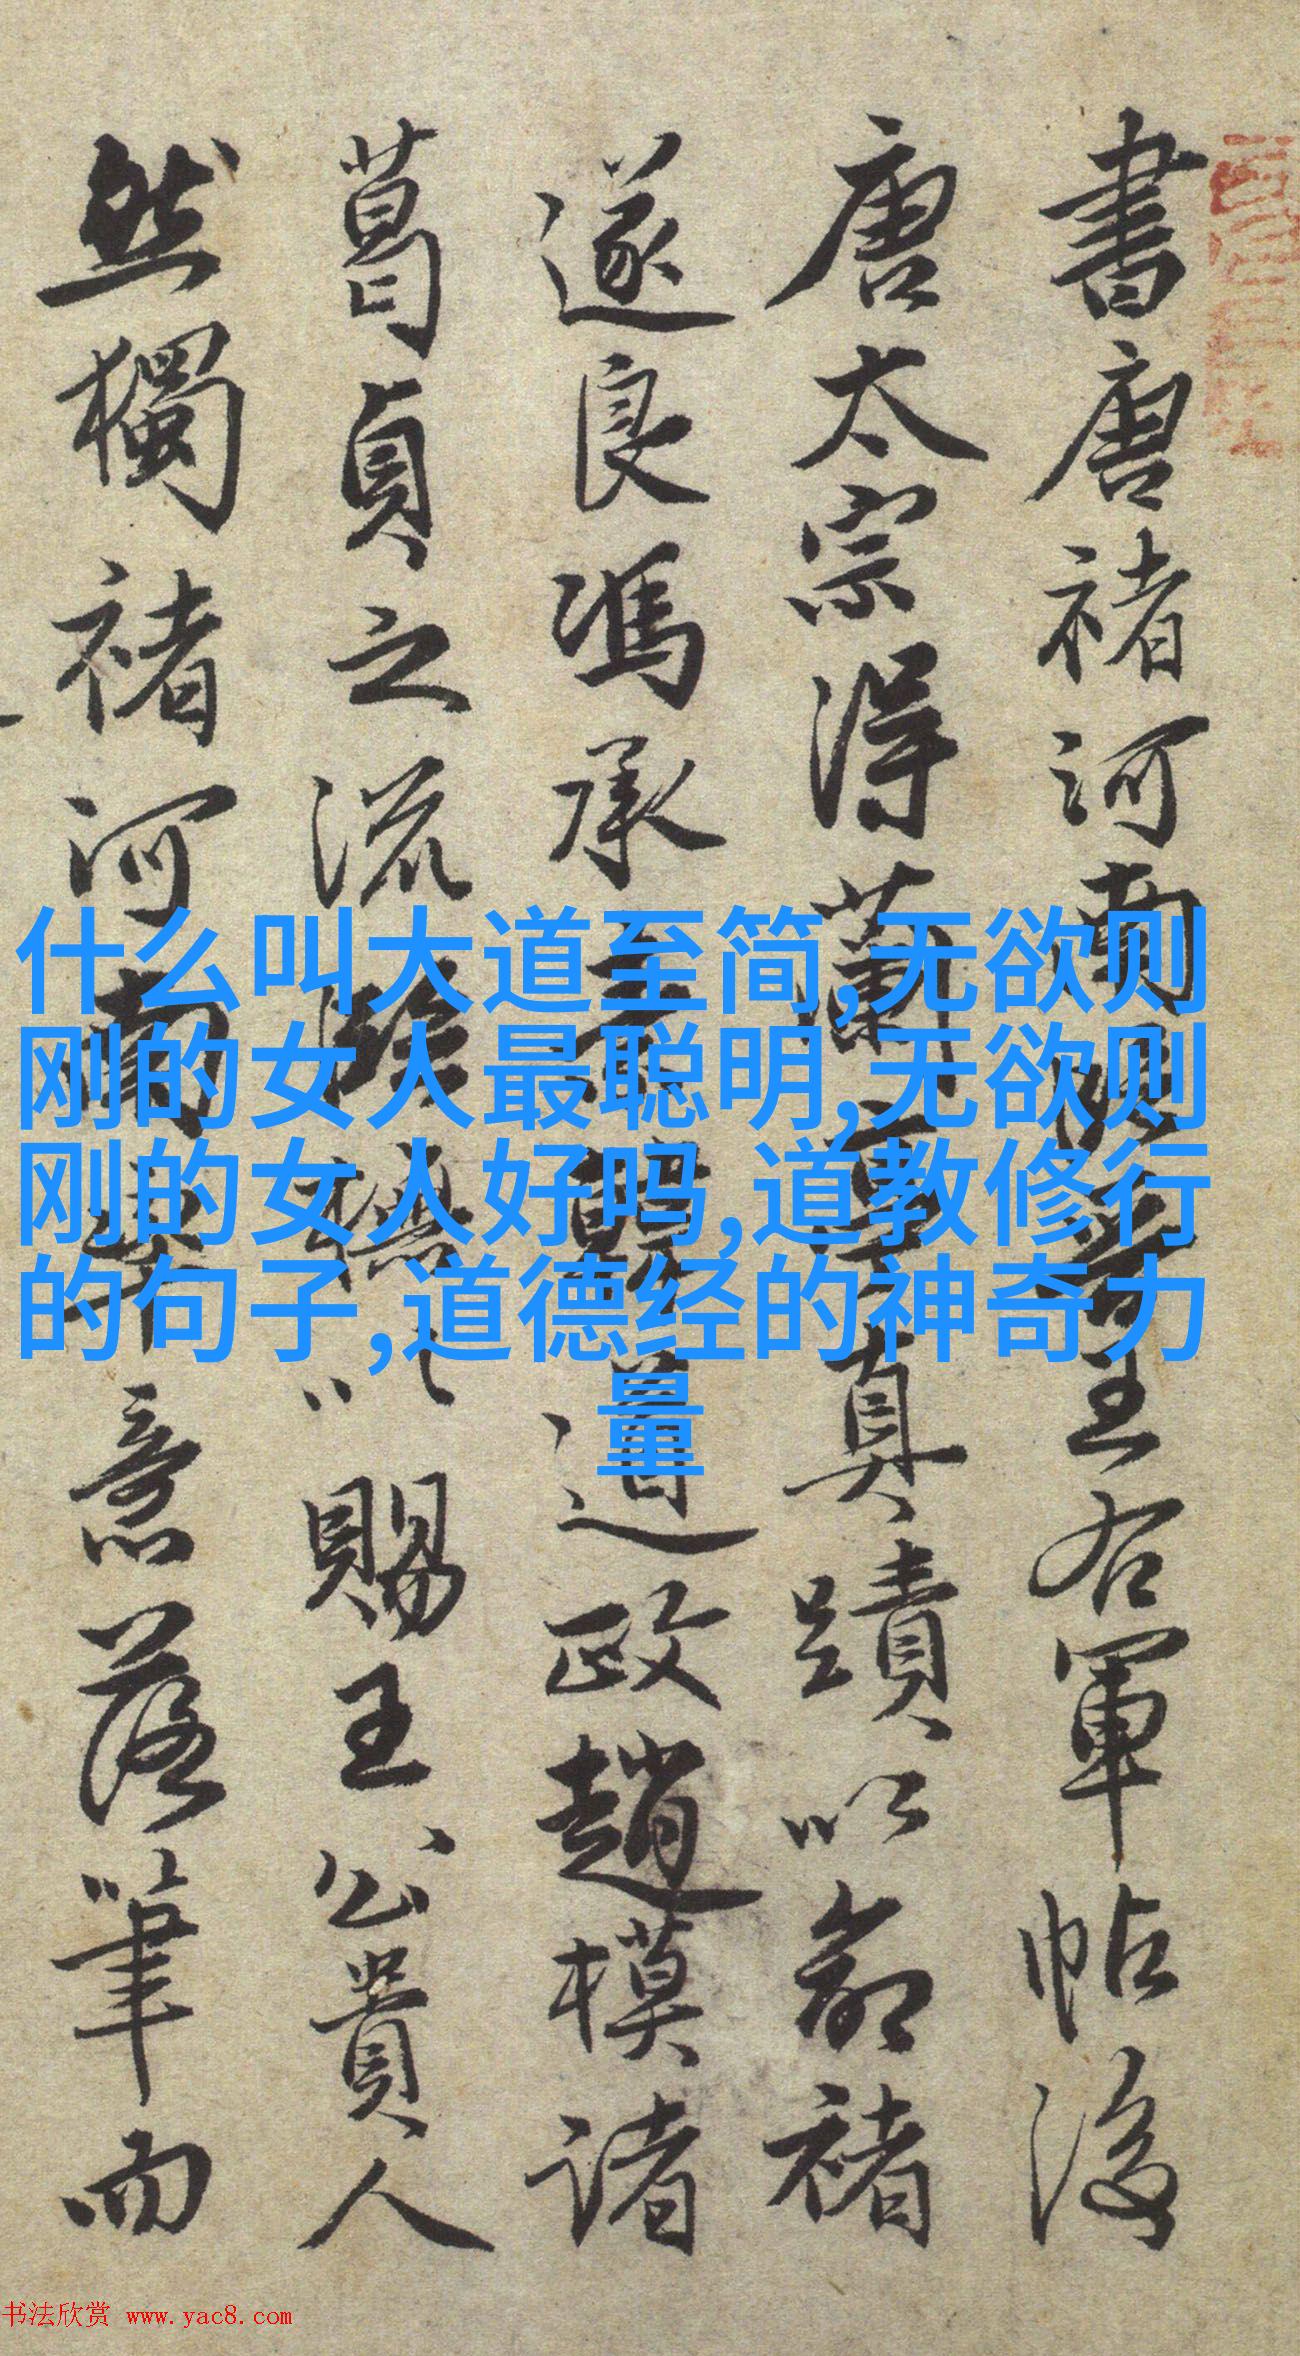 書唐褚河南臨王右軍帖後
唐太宗得蘭亭真蹟以命褚
遂良馮承韓道政趙模諸
葛貞之流臨搨以賜王公貴人
然獨褚河南意落筆而
什么叫大道至简,无欲则
刚的女人最聪明,无欲则
刚的女人好吗,道教修行
的句子,道德经的神奇力
量
书法欣赏 www.yac8.com